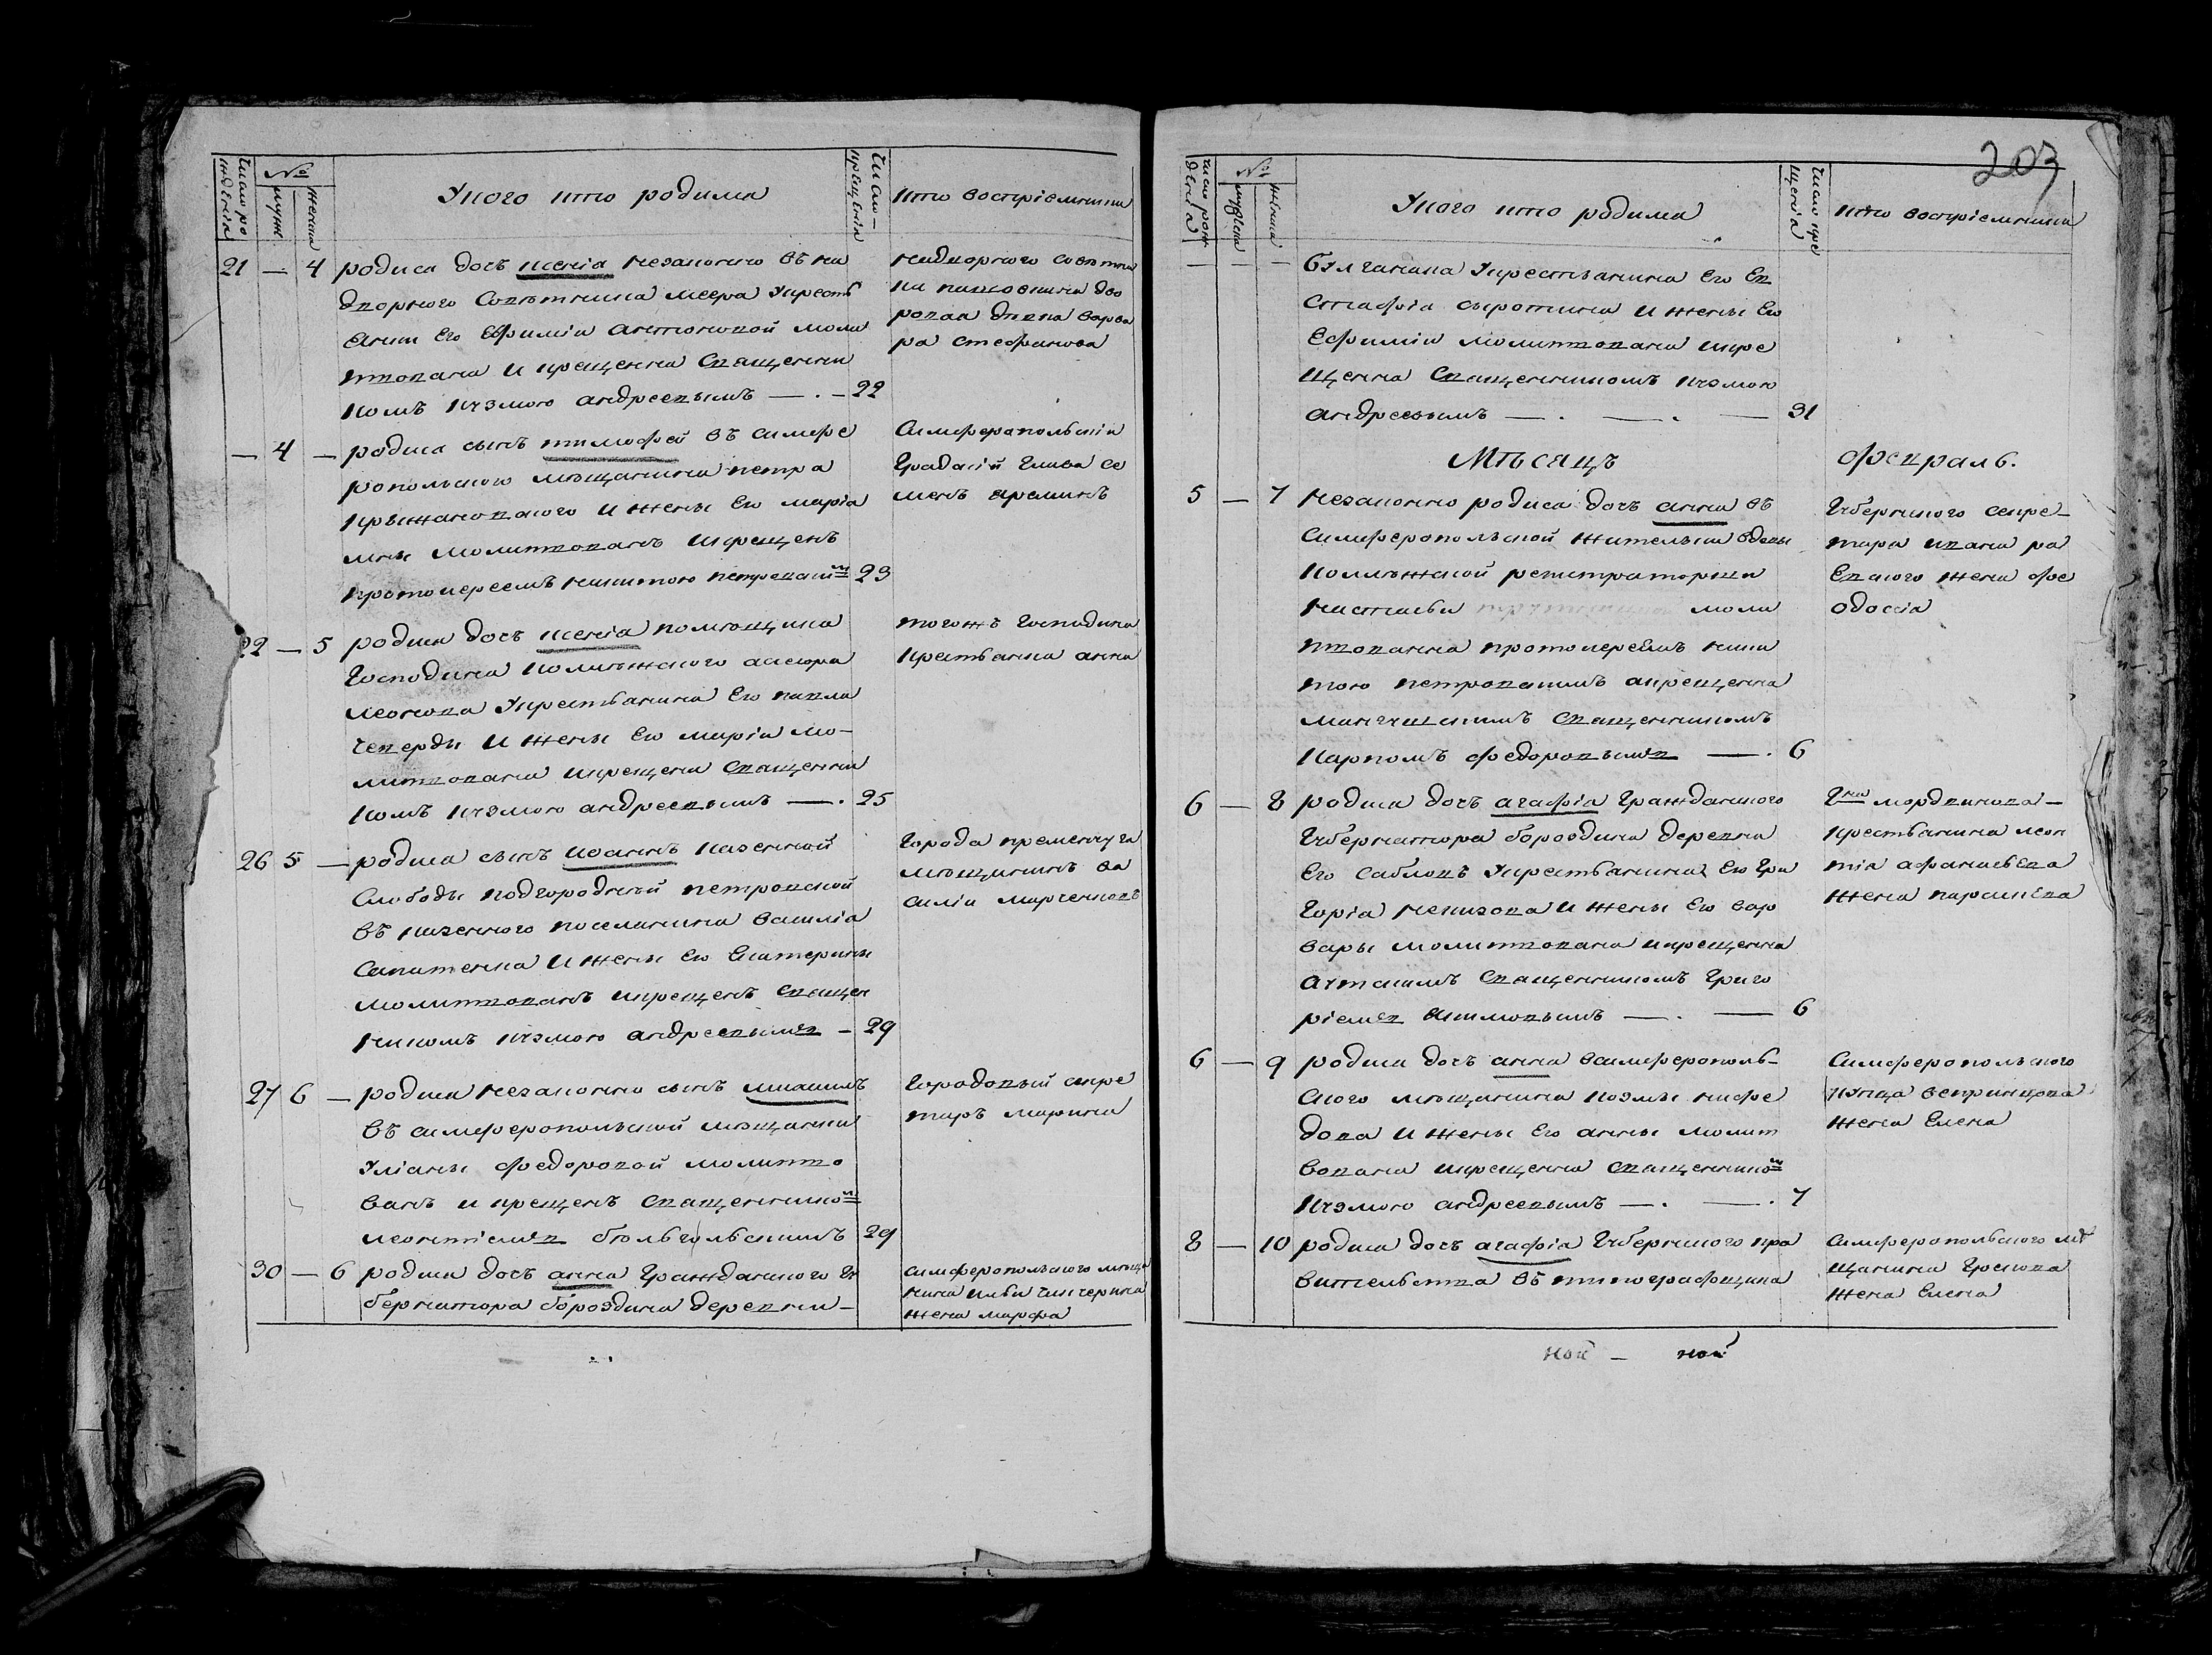 Число ро
жденія
№
мужс
женска
У кого кто родился
Число
крещенія
кто воспріемники
21 — 4 родиса дочъ ксенія незаконно въ на
дворного Советника меера Укресть
янки Его Ефиміи антоновой моли
твована и крещенна Священни
комъ Кузмою андреевымъ — 22
надворного советни
ка
ро
ра стефанова
— 4 — родиса сынъ тимофей въ симфе
ропольского мещанина петра
кржижановского и жены Его маріа
мны молитвованъ икрещенъ
протоиереемъ никитою петровским 23
Симферопольскіи
Градскій Глава се
менъ яреминъ
22 — 5 родиса дочъ ксенія помещика
Господина Колежского асесора
леонова Укрестьянина Его павла
чеперды и жены Его маріи мо-
литвована икрещена Священни
комъ Кузмою андреевымъ — 25
тогожъ Господина
крестьянка анна
26 5 — родиса сынъ иоаннъ казенной
Слободы подгородньй петровской
въ казенного поселянина василіа
сапитенка и жены Его Екатерины
молитвованъ икрещенъ Священ
никомъ Кузмою андреевымъ — 29
Города кременчуга
мещанинъ ва
силіи марченковъ
27 6 — родиса незаконно сынъ михаилъ
въ симферопольской мещанки
Уліаны федоровой молитво
ванъ и крещенъ Священником
леонтіемъ 29
Городовый секре
таръ маркина
30 — 6 родиса дочъ анна Гражданского Гу
бернатора бороздина деревни —
симферопольского меща
нина ильи
жена марфа
203
число рож
денія
№
мужеска
женска
У кого кто родился
Число кре
щенія
кто воспріемники
— — булганака Укрестьанина Его Ев
стафіа сыротина и жены Его
Ефиміи молитвована икре
щенна Священникомъ Кузмою
андреевымъ — — 31
Месяцъ февраль.
5 — 7 незаконно родиса дочъ анна въ
симферопольской жителки вдовы
колежской регистраторши
настасьи моли
твованна протоиереемъ ники
тою петровскимъ акрещенна
мангушскимъ Священникомъ
Карпомъ федоровымъ — 6
Губернского секре-
тара ивана ра
евского жена фе
одосіа
6 — 8 родиса дочъ агафіа Гражданского
Губернатора бороздина деревни
Его Сабловъ Укрестьянина Его Гри
горіа и жены Его вар
вары молитвована икрещенна
ачтскимъ Священникомъ Григо
ріемъ акимовымъ — — 6
Гна мордвинова —
крестьянина леон
тіа афанасьева
жена параскева
6 — 9 родиса дочъ анна всимферополь-
ского мещанина козмы нефе
дова и жены Его анны молит
вована икрещенна священником
Кузмою андреевымъ — — 7
Симферопольского
купца
жена Елена
8 — 10 родиса дочъ агафіа Губернского пра
вительства въ типографщика
Симферопольского ме
щанина Грекова
жена Елена
ной — ной